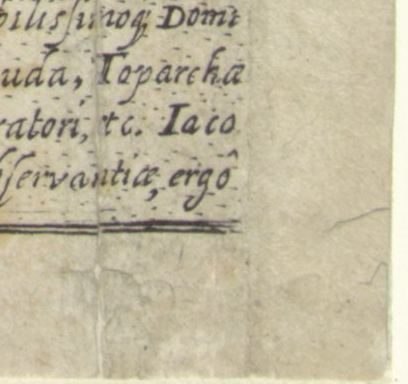 bilissimoq; Domi
uda, Toparchæ
ratori, etc. Iaco
bservantiæ, ergô